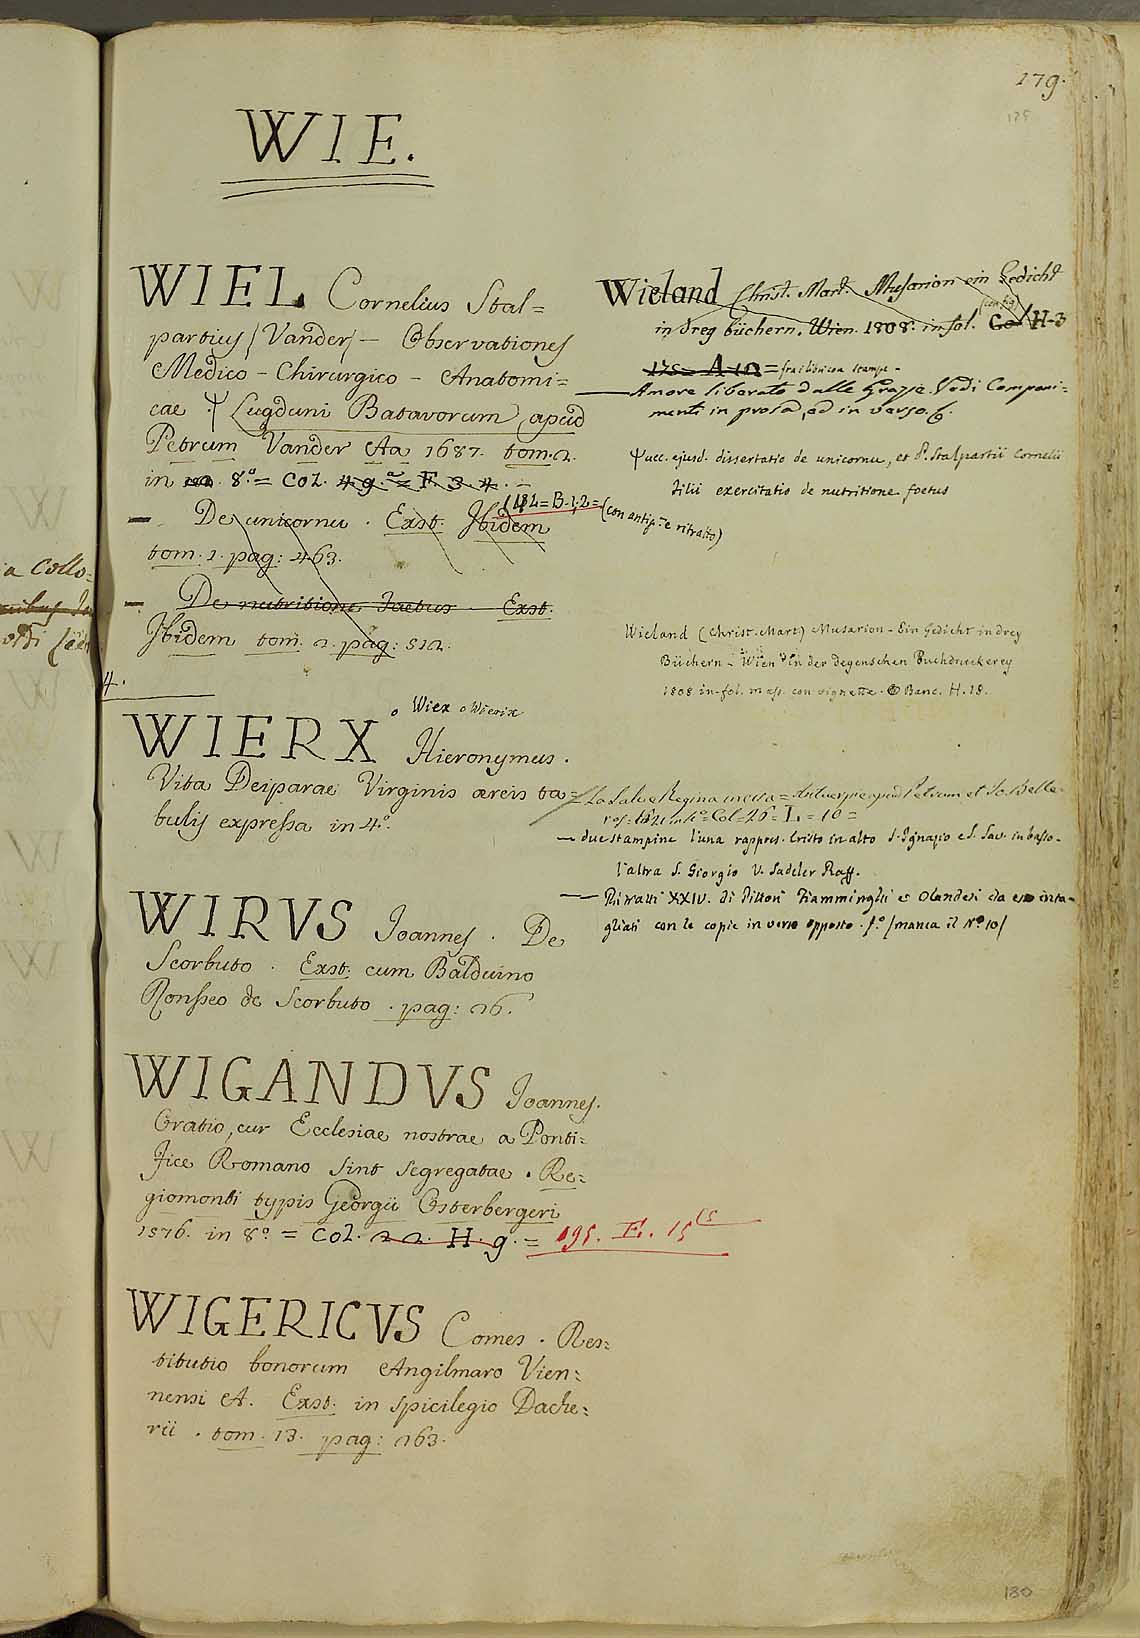 179.
175
WIE.
WIEL Cornelius Stal=
partius (Vander) - Observationes
Medico - Chirurgico - Anatomi=
cae Ψ Lugduni Batavorum apud
Petrum Vander Aa 1687. tom. 2.
in 8.° = Col. 49. = F. 3. 4. -
(184=B-1,2= (con antip. e ritratto)
- De unicornu. Exst. Ibidem
tom. 2. pag: 463.
- De nutritione faetus. Exst.
Ibidem tom. 2. pag: 512.
WIERX o Wiex o Wierix
Hieronymus.
Vita Deiparae Virginis aereis ta=
bulis expressa in 4.°
WIRVS Joannes. De
Scorbuto. Exst. cum Balduino
Ronsseo de Scorbuto. pag: 26.
WIGANDVS Joannes.
Oratio, cur Ecclesiae nostrae a Ponti=
fice Romano sint segregatae. Re=
giomonti typis Georgii Osterbergeri
1576. in 8.° = Col. 22. H. 9. = 195. E. 15
WIGERICVS Comes. Res=
titutio bonorum Angilmaro Vien=
nensi A. Exst. in Spicilegio Dache=
rii. tom. 13. pag: 263.
Wieland Christ. Mart. Musarion ein Gedicht
in dreg büchern. Wien. 1808. in fol. H-3
175 = A 12 = fra libri con stampe -
— Amore liberato dalle Grazie. Vedi Componi=
menti in prosa, ed in verso.
Ψ acc. ejusd. dissertatio de unicornu, et P. Stalpartii Cornelii
filii exercitatio de nutritione foetus
Wieland (Christ. Mart) Musarion - Ein Gedicht in drey
Büchern - Wien In der Degenschen Buchdruckerey
1808 in-fol. mass. con vignette. Banc. H. 18.
La Salve Regina incisa = Antuerpie apud Petrum et Jo. Belle=
ros = Col = 26 = L = 10 =
— due stampine l'una rappres. Cristo in alto S. Ignazio e S. Sav. in basso.
l'altra S. Giorgio V. Sadeler Raff.
— Ritratti XXIV. di Pittori Fiamminghi e Olandesi da esso inta=
gliati con le copie in verso opposto. f.° (manca il N.° 10)
a Collo=
4.
130